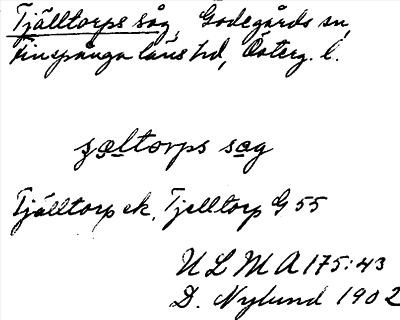 Tjälltorps såg, Godegårds sn,
Finspånga läns hd, Österg. l.
sæltorps sɑg
Tjälltorp ek, Tjelltorp G 55
ULMA 175:43
D. Nylund 1902